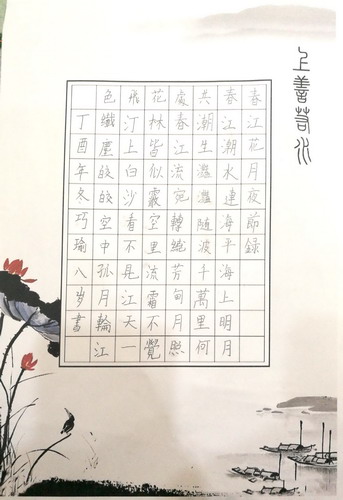 上善若水
春江花月夜節錄
春江潮水連海平海上明月
共潮生灩灩隨波千萬里何
處春江流宛轉繞芳甸月照
花林皆似霰空里流霜不覺
飛汀上白沙看不見江天一
色纖塵皎皎空中孤月輪江
丁酉年冬巧瑜八岁書